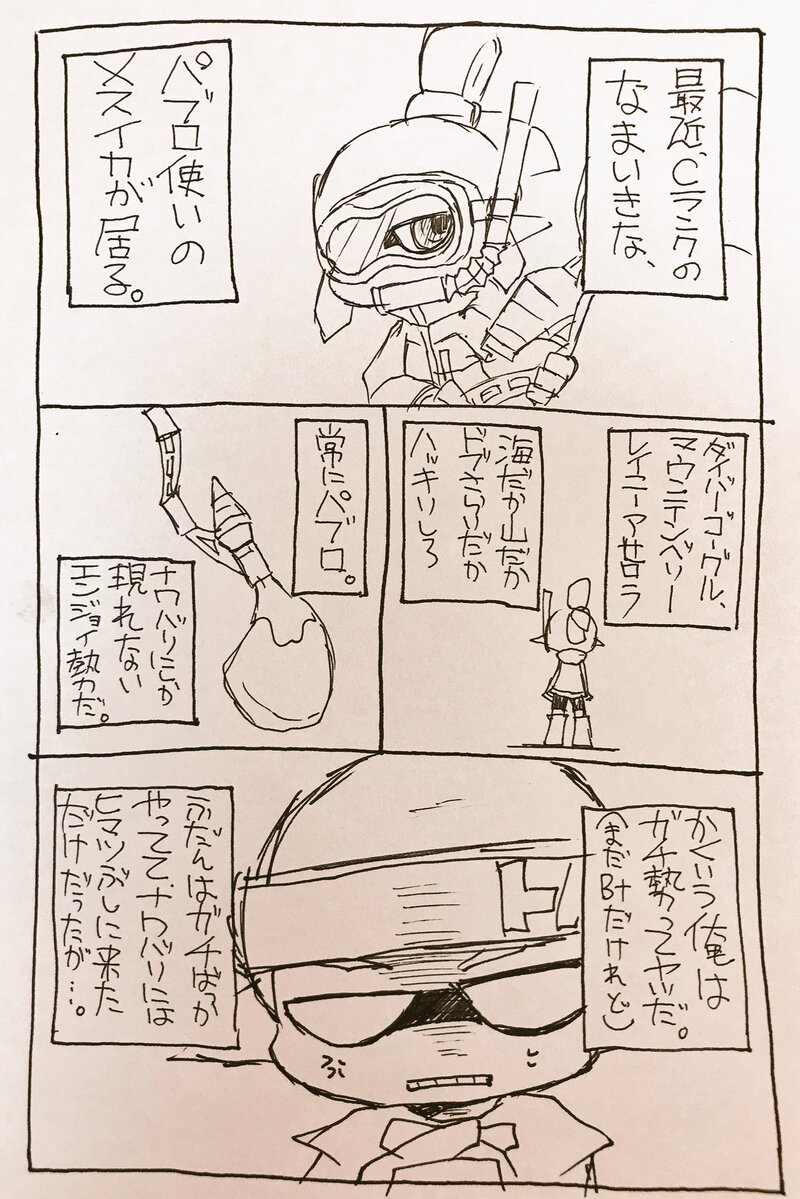 最近、Cランクの
なまいきな、
パブロ使いの
メスイカが居る。
ダイバーゴーグル、
マウンテンベリー
レイニーアセロラ
海だか山だか
ドブさらいだか
ハッキリしろ
常にパブロ。
ナワバリにしか
現れない
エンジョイ勢力だ。
かくいう俺は
ガチ勢ってヤツだ。
(まだB+だけれど)
ふだんはガチばっか
やってて、ナワバリには
ヒマツぶしに来た
だけだったが…。